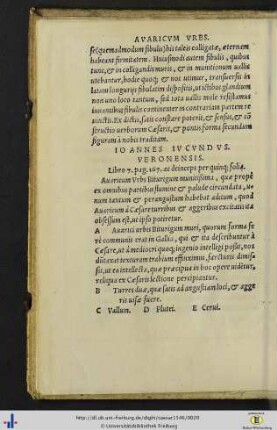 AVARICVM VRBS.
se (quemadmodum fibulis) his taleis colligatæ, æternam
habeant firmitatem. Huiusmodi autem fibulis, quibus
tunc, & in colligandis muris, & in munitionum vallis
utebantur, hodie quoq; & nos utimur, transuersis in
latum longuriis fibulatim dispositis, ut ictibus glandium
non uno loco tantum, sed tota uallis mole resistamus
quibus fibulis continenter in contrariam partem re
uinctis. Ex dictis, satis constare poterit, & sensus, & con
structio uerborum Cæsaris, & pontis forma secundum
figuram à nobis traditam.
IOANNES IVCVNDVS
VERONENSIS.
Libro 7. pag. 187. ac deinceps per quinq; folia.
Auaricum Vrbs Biturigum munitissima, quæ propè
ex omnibus partibus flumine & palude circundata, u
num tantum & perangustum habebat aditum, quod
Auaricum à Cæsare turribus & aggeribus excitatis
obsessum est, ut ipso patietur.
A Auarici urbis Biturigum muri, quorum forma fe
rè communis erat in Gallia, qui & ita describuntur à
Cæsare, ut à mediocri quoq; ingenio intelligi possit, nos
tamen texturam trabium effinximus, secturis dimis
sis, ut ea intellecta, quæ præcipua in hoc opere uidetur,
reliqua ex Cæsaris lectione percipiantur.
B Turres duæ, quæ satis ad angustiam loci, & agge
ris uisæ fuere.
C Vallum. D Plutei. E Cerui.
http://dl.ub.uni-freiburg.de/diglit/caesar1545/0020
© Universitätsbibliothek Freiburg